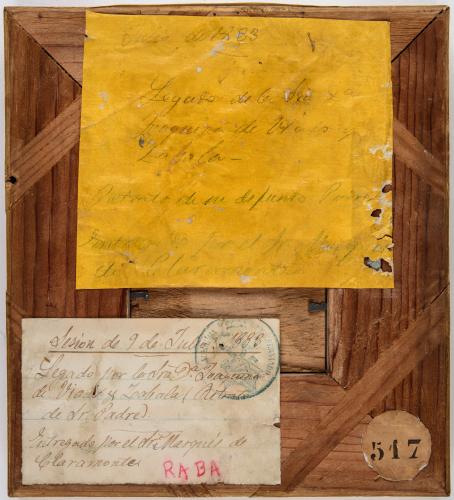 de 1883
Legado de la Sra Da
Joaquina de Viado y
Zabala -
Retrato de su difunto Padre
por el Sr Marqués
de Claramonte
Sesion de 9 de Julio 1883
Legado por la Sra. Da. Joaquina
de Viado y Zabala (Retrato
de Sr. Padre)
Entregado por el Sr. Marqués de
Claramonte
RABA
517